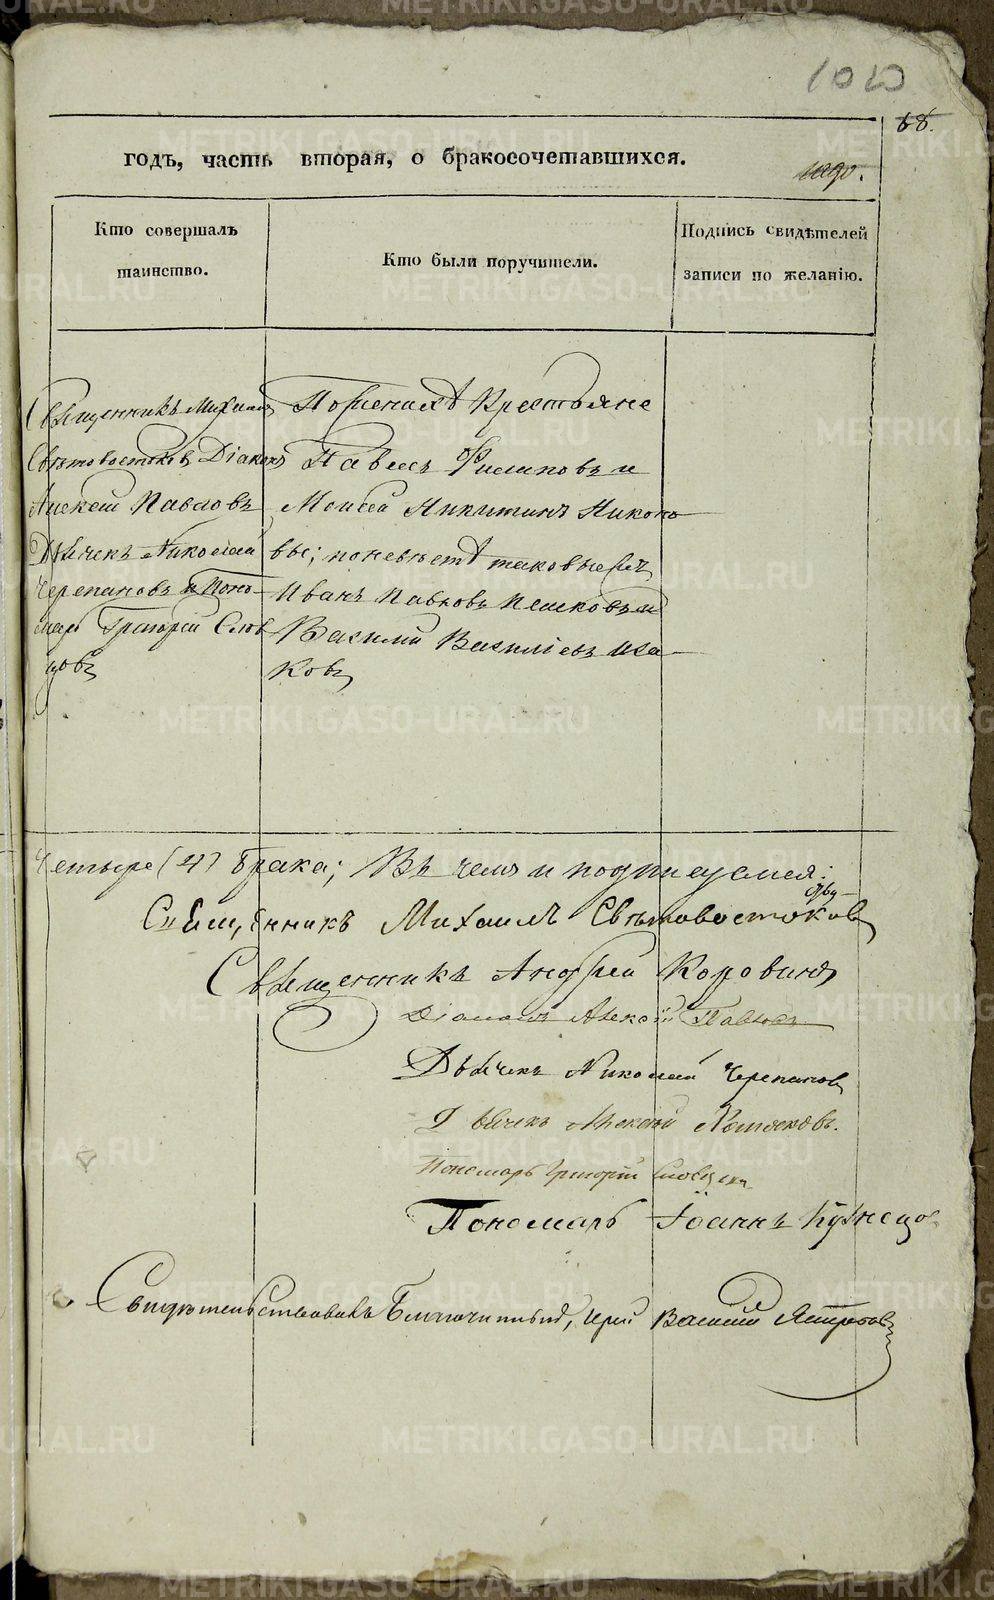 68.
годъ, часть вторая, о бракосочетавшихся.
Кто совершалъ
таинство.
Кто были поручители.
Подпись свидѣтелей
записи по желанію.
Священникъ Михаилъ
Свѣтовостоковъ Діаконъ
Алексѣй Павловъ
Дьячекъ Николай
Черепановъ и Поно-
марь Григорій Слов
цовъ
По женихѣ Крестьяне
Павелъ Филиповъ и
Моисей Никитинъ Никоно
вы; по невѣстѣ таковые
Иванъ Павловъ и
Василий Васильевъ Иса-
ковъ
Четыре (4) брака; Въ чемъ и подписуемся:
Священникъ Михаилъ Свѣтовостоковъ
Священникъ Андрей Коровинъ
Діаконъ Алексѣй Павловъ
Дьячекъ Николай Черепановъ
Дьячекъ Алексѣй
Пономарь Григорій Словцовъ
Пономарь Іоаннъ Кузнецо
Свидѣтельствовалъ Благочинный, Іерей Василій
METRIKI.GASO-URAL.RU